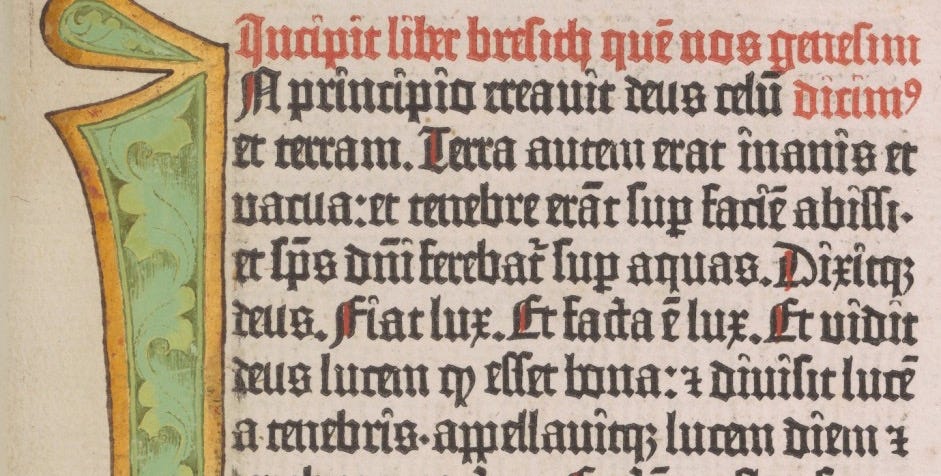 Incipit liber bresith quē nos genesim
dicimꝰ
IN principio creavit deus celū
et terram. Terra autem erat inanis et
vacua: et tenebre erāt sup faciē abissi·
et sp̄s dn̄i ferebat᷑ sup aquas. Dixitqꝫ
deus. Fiat lux. Et facta ē lux. Et vidit
deus lucem ꝙ esset bona: ⁊ divisit lucē
a tenebris· appellavitqꝫ lucem diem ⁊